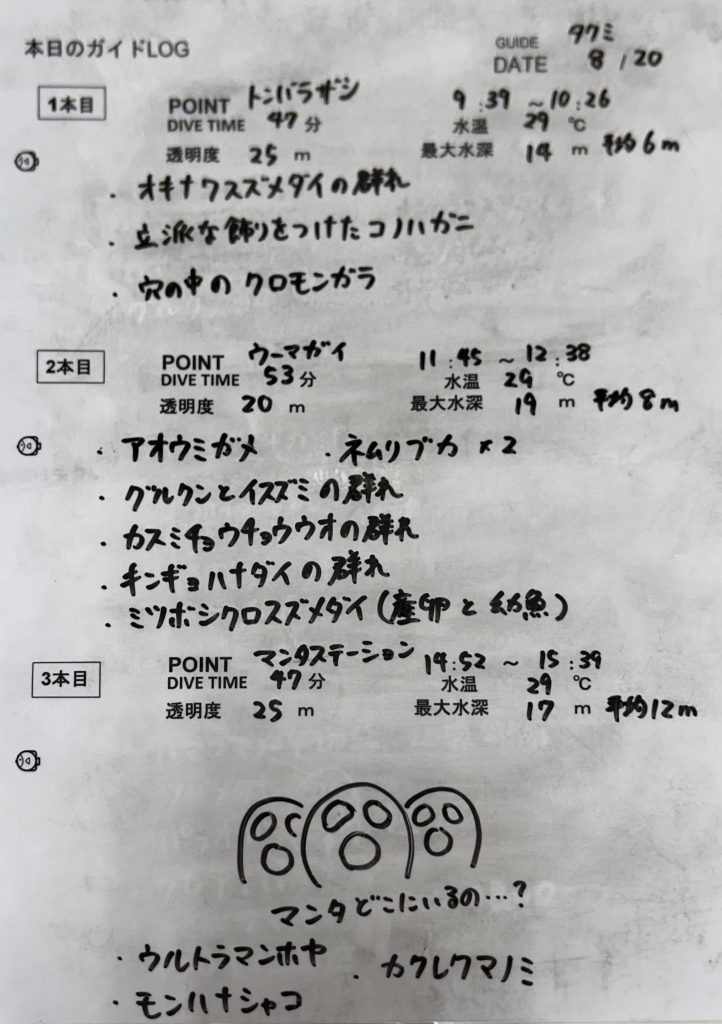 本日のガイドLOG
GUIDE タクミ
DATE 8 / 20
1本目
POINT トンバラザシ 9:39 ~10:26
DIVE TIME 47分 水温 29 ℃
透明度 25 m 最大水深 14 m 平均6m
・オキナワスズメダイの群れ
・立派な飾りをつけたコノハガニ
・穴の中のクロモンガラ
2本目
POINT ウーマガイ 11:45 ~ 12:38
DIVE TIME 53分 水温 29 ℃
透明度 20 m 最大水深 19 m 平均8m
・アオウミガメ ・ネムリブカ ×2
・グルクンとイスズミの群れ
・カスミチョウチョウウオの群れ
・キンギョハナダイの群れ
・ミツボシクロスズメダイ(産卵と幼魚)
3本目
POINT マンタステーション 14:52 ~ 15:39
DIVE TIME 47分 水温 29 ℃
透明度 25 m 最大水深 17 m 平均12m
マンタどこにいるの…?
・ウルトラマンホヤ ・カクレクマノミ
・モンハナシャコ